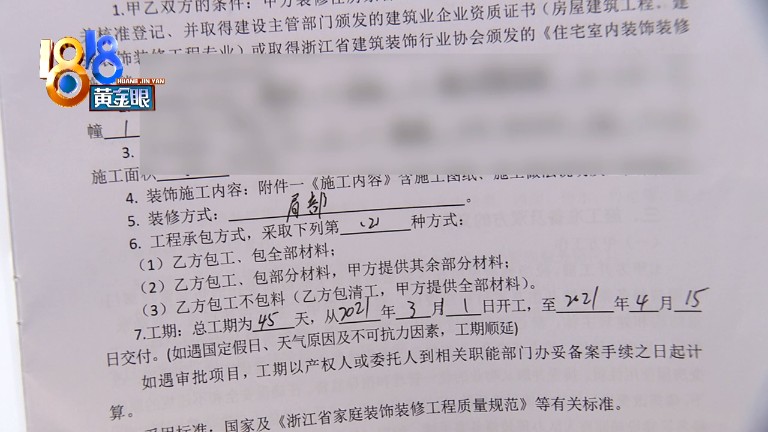 1.甲乙双方的条件：甲方装修住房
核准登记、并取得建设主管部门颁发的建筑业企业资质证书（房屋建筑工程、建
装修工程专业）或取得浙江省建筑装饰行业协会颁发的《住宅室内装饰装修
1818
HUANG JIN YAN
黄金眼
幢 1
3.
施工面积
4. 装饰施工内容：附件一《施工内容》含施工图纸、施工做法说明
5. 装修方式： 局部 。
6. 工程承包方式，采取下列第 (2) 种方式：
（1）乙方包工、包全部材料；
（2）乙方包工、包部分材料，甲方提供其余部分材料；
（3）乙方包工不包料（乙方包清工，甲方提供全部材料）。
7.工期：总工期为 45 天，从 2021 年 3 月 1 日开工，至 2021 年 4 月 15
日交付。(如遇国定假日、天气原因及不可抗力因素，工期顺延)
如遇审批项目，工期以产权人或委托人到相关职能部门办妥备案手续之日起计
算。
采用标准，国家及《浙江省家庭装饰装修工程质量规范》等有关标准。